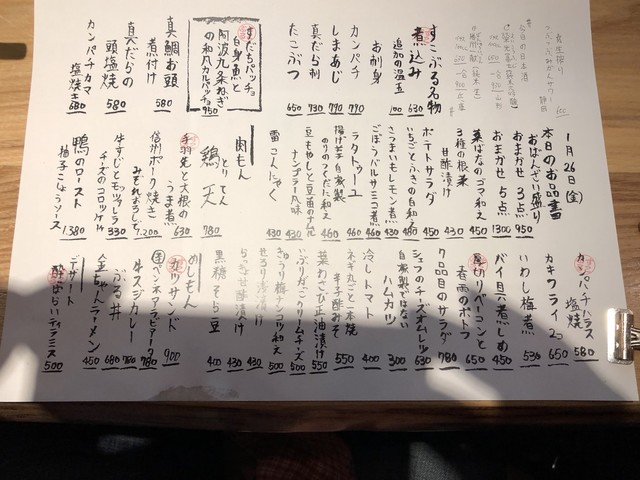 1月26日(金)
本日のお品書
おばんざい盛り
おまかせ 3点 950
おまかせ 5点 1300
菜ばなのゴマ和え 450
3種の根菜
甘酢漬け 430
ポテトサラダ 450
いちごとふきの白和え 480
さつまいもレモン煮 430
ごぼうバルサミコ煮 460
ラタトゥーユ 460
揚げ芋自家製
のりのつくだに和え 460
豆もやしと豆苗のナムル
ナンプラー風味 430
雷こんにゃく 430
すこぶる名物
煮込み 630
追加の温玉 100
お刺身
カンパチ 770
しまあじ 790
真だら刺 730
たこぶつ 650
すだちパッチョ
白身魚と
阿波九条ねぎ
の和風カルパッチョ 950
真鯛お頭
煮付け 580
真だらの
頭塩焼 580
カンパチカマ
塩焼き 680
肉もん
とり てん
鶏天 780
手羽先と大根の
うま煮 630
信州ポーク焼き
みぞれおろしで 1,200
牛すじとモッツァレラ
チーズのコロッケ 1ヶ 330
鴨のロースト
柚子こしょうソース 1,380
カンパチハラス
塩焼 580
カキフライ 2コ 650
いわし梅煮 530
バイ貝煮しめ 450
厚切りベーコンと
春雨のポトフ 650
7品目のサラダ 780
シェフのチーズオムレツ 630
自家製ではない
ハムカツ 300
冷しトマト 400
ネギたこと一本焼
辛子酢みそ 550
葉わさび正油漬け 550
いぶりガッコクリームチーズ 500
きゅうり梅ナンコツ和え 500
せろり浅漬け 430
らっきょ甘酢漬け 430
黒糖そら豆 400
めしもん
カツサンド 900
ペンネアラビアータ 780
牛スジカレー 780
ぶる丼 680
金ちゃんラーメン 450
デザート
酔っぱらいティラミス 500